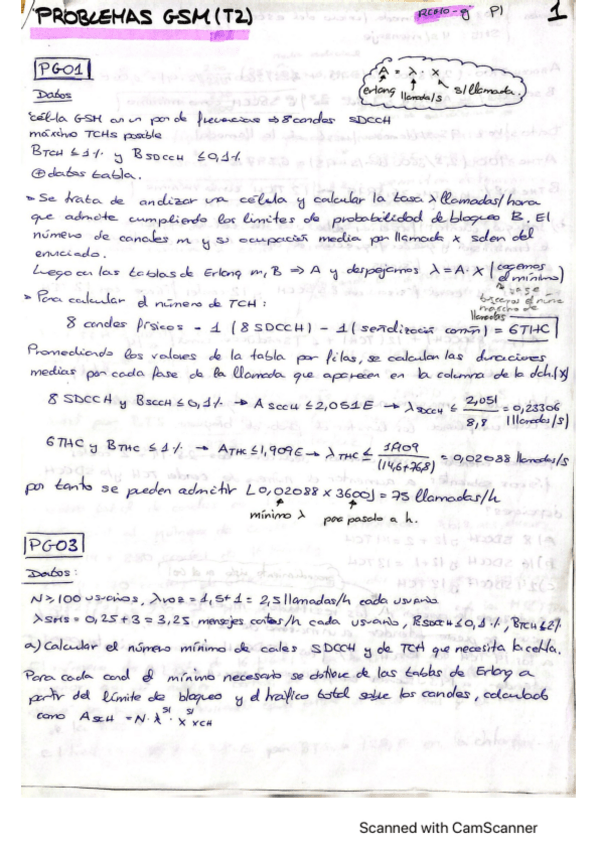 PROBLEMAS GSM (T2)
P1
1
PG01
A = λ · x
erlang llamada/s s/llamada.
Datos
célula GSM con un par de frecuencias ⇒ 8 canales SDCCH
máximo TCHs posible
BTCH ≤ 1% y BSDCCH ≤ 0,1%
⊕ datos tabla.
Se trata de analizar una célula y calcular la tasa λ llamadas/hora
que admite cumpliendo los límites de probabilidad de bloqueo B. El
número de canales m y su ocupación media por llamada x salen del
enunciado.
Luego en las tablas de Erlang m, B ⇒ A y despejamos λ = A · X (cogemos
el mínimo)
llamadas
Para calcular el número de TCH:
8 canales físicos - 1 (8 SDCCH) - 1 (señalización común) = 6 THC
Promediando los valores de la tabla por filas, se calculan las duraciones
medias por cada fase de la llamada que aparecen en la columna de la dcha (x)
8 SDCCH y BSCCH ≤ 0,1% → ASCCH ≤ 2,051E → λSDCCH ≤ 2,051 / 8,8 = 0,23306 llamadas/s
6 THC y BTHC ≤ 1% → ATHC ≤ 1,909E → λTHC ≤ 1,909 / (14,6+76,8) = 0,02088 llamadas/s
por tanto se pueden admitir ⌊0,02088 × 3600⌋ = 75 llamadas/h
mínimo λ por pasarlo a h.
PG03
Datos:
N ≥ 100 usuarios, λvoz = 1,5 + 1 = 2,5 llamadas/h cada usuario
λSMS = 0,25 + 3 = 3,25 mensajes cortos/h cada usuario, BSDCCH ≤ 0,1%, BTCH ≤ 2%
a) Calcular el número mínimo de cales SDCCH y de TCH que necesita la celda.
Para cada canal el mínimo necesario se obtiene de las tablas de Erlang a
partir del límite de bloqueo y el tráfico total sobre los canales, calculado
como AxCH = N · λ^SI · x^SI xCH
Scanned with CamScanner